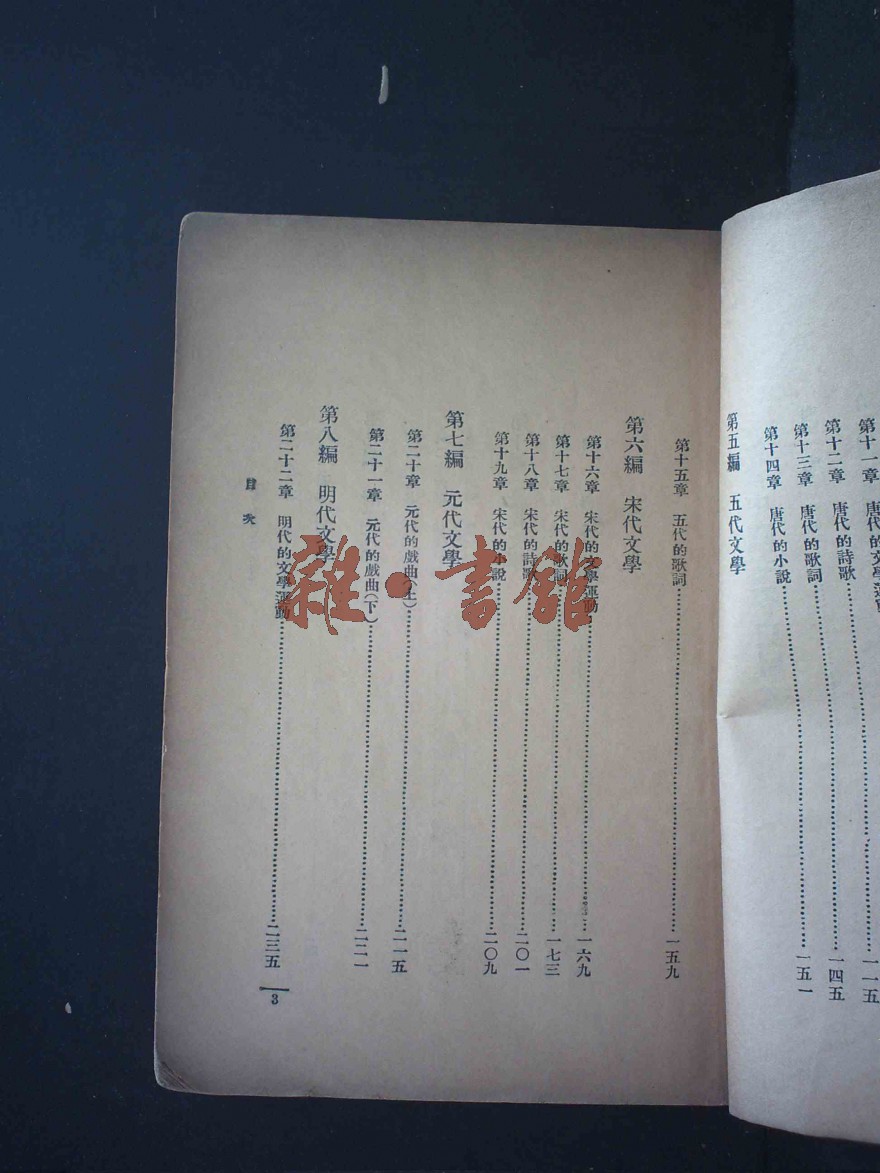 第十一章　唐代的文學運動……一一五
第十二章　唐代的詩歌……一四五
第十三章　唐代的歌詞……一五一
第十四章　唐代的小說
第五編　五代文學
第十五章　五代的歌詞……一五九
第六編　宋代文學
第十六章　宋代的文學運動……一六九
第十七章　宋代的歌詞……一七三
第十八章　宋代的詩歌……二〇一
第十九章　宋代的小說……二〇九
第七編　元代文學
第二十章　元代的戲曲(上)……二一五
第二十一章　元代的戲曲(下)……二二一
第八編　明代文學
第二十二章　明代的文學運動……二三五
目次
3
雜·書館